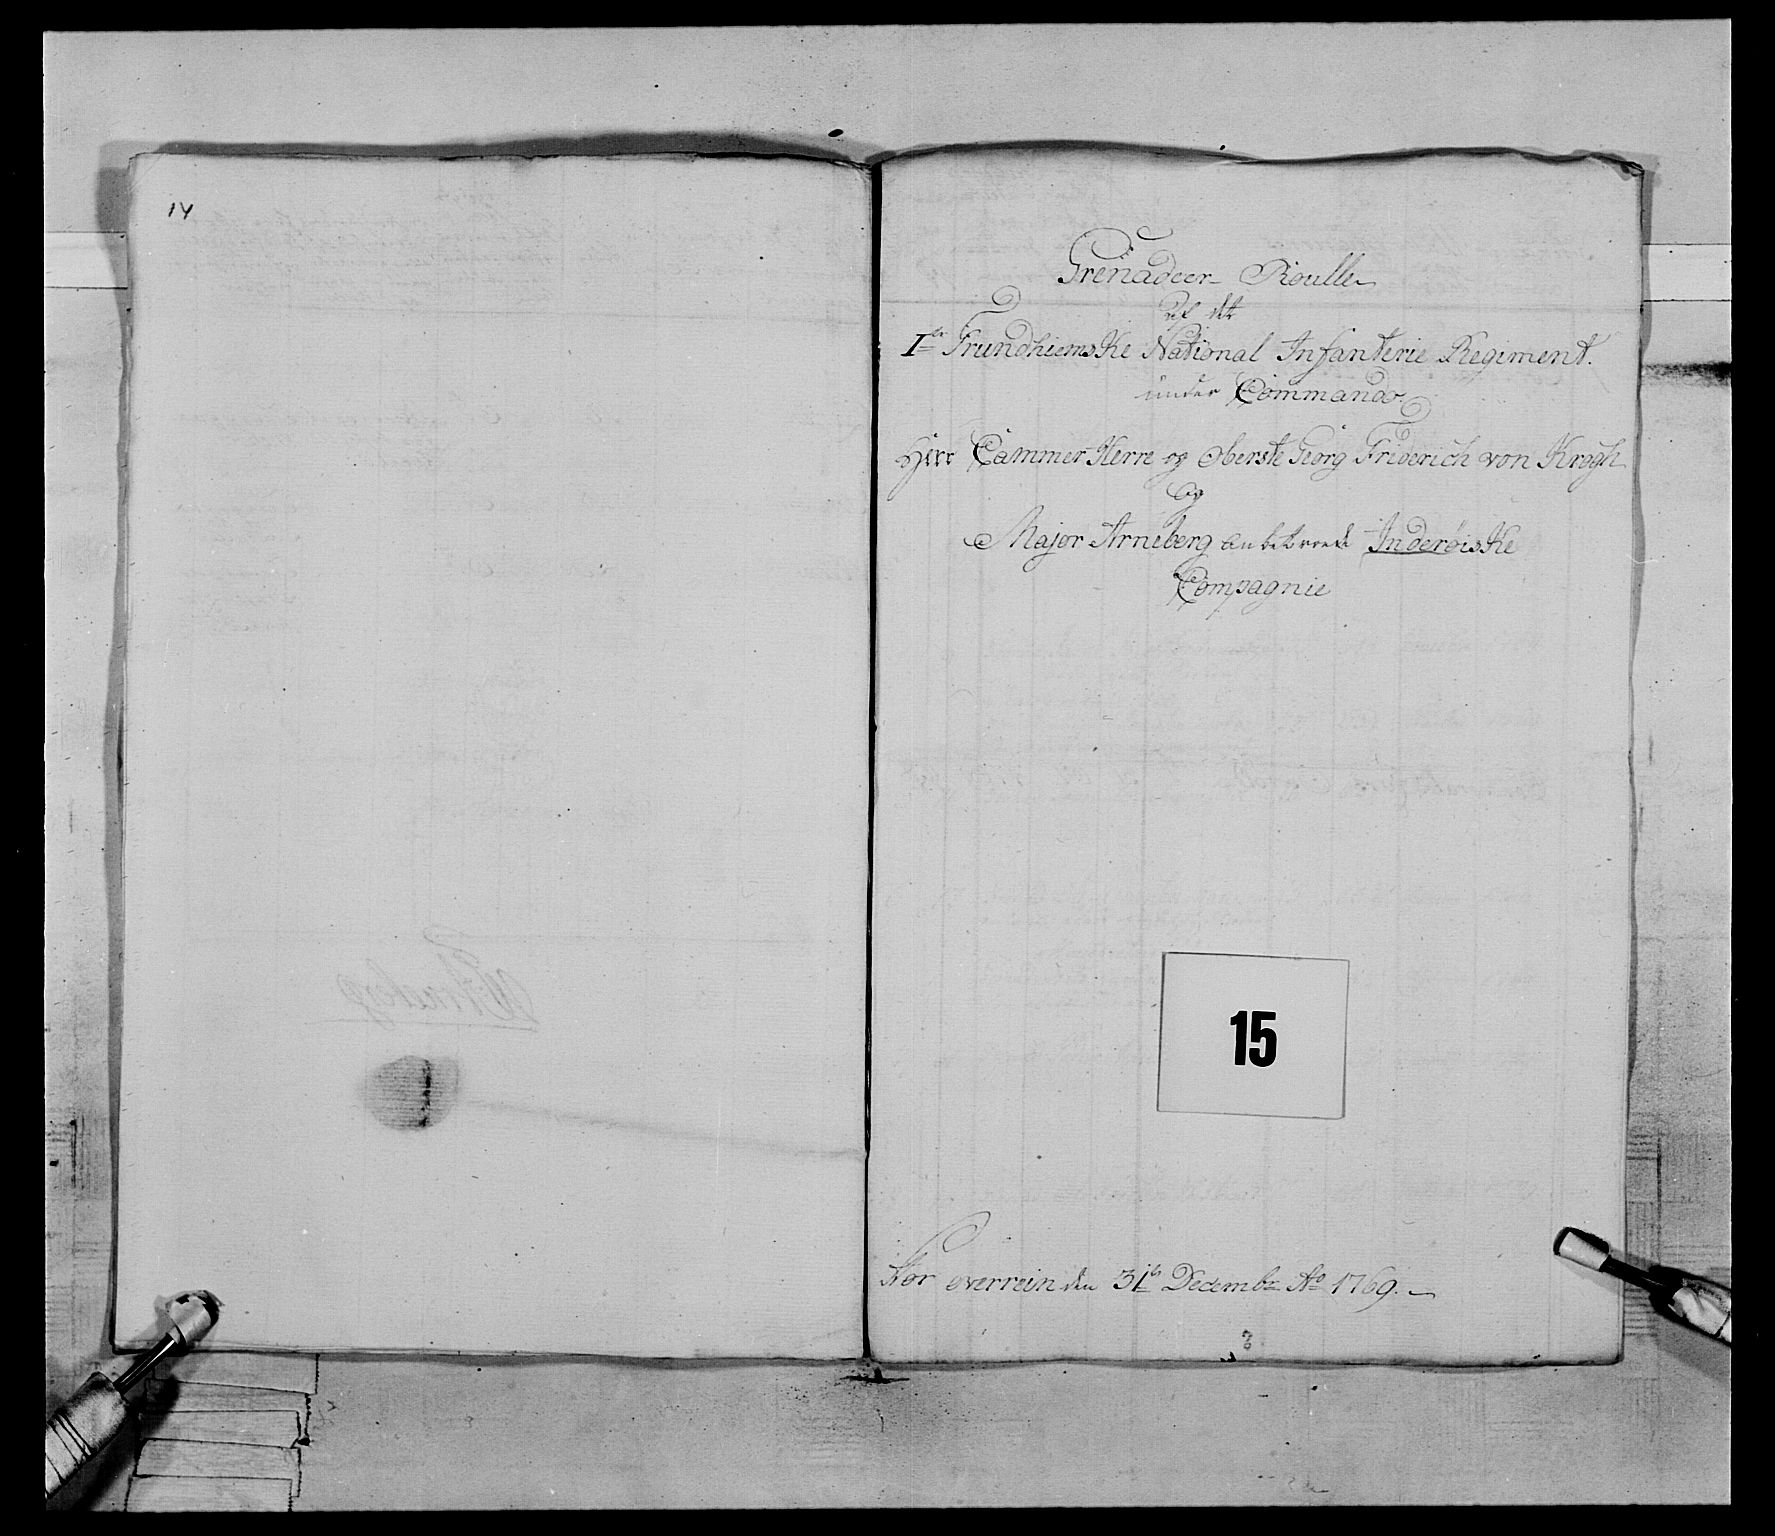 14
Grenadeer Roulle
af det
1te Trundhiemske National Infanterie Regiment.
under Commando
Herr Cammer Herre og Oberste Georg Friderich von Krogh
og
Major Arneberg anbetroede Inderøiske
Compagnie
15
overrein den 31te Decembr Ao 1769.